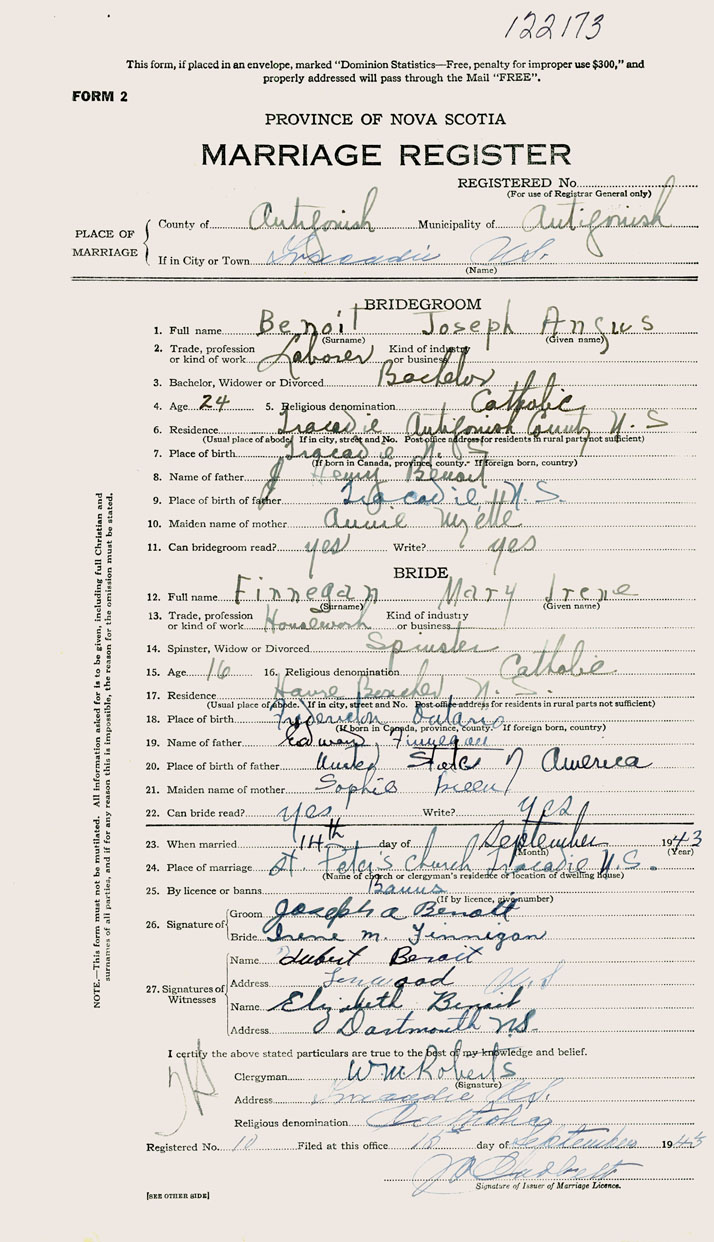 122173
This form, if placed in an envelope, marked "Dominion Statistics—Free, penalty for improper use $300," and
properly addressed will pass through the Mail "FREE".
FORM 2
PROVINCE OF NOVA SCOTIA
MARRIAGE REGISTER
REGISTERED No.
(For use of Registrar General only)
PLACE OF MARRIAGE
County of Antigonish Municipality of Antigonish
If in City or Town Tracadie N.S.
(Name)
BRIDEGROOM
1. Full name Benoit Joseph Angus
(Surname) (Given name)
2. Trade, profession or kind of work Laborer Kind of industry or business
3. Bachelor, Widower or Divorced Bachelor
4. Age 24 5. Religious denomination Catholic
6. Residence Tracadie Antigonish County N.S
(Usual place of abode. If in city, street and No. Post office address for residents in rural parts not sufficient)
7. Place of birth Tracadie N.S
(If born in Canada, province, county. If foreign born, country)
8. Name of father Henry Benoit
9. Place of birth of father Tracadie, N.S.
10. Maiden name of mother Annie
11. Can bridegroom read? yes Write? yes
BRIDE
12. Full name Finnegan Mary Irene
(Surname) (Given name)
13. Trade, profession or kind of work Housework Kind of industry or business
14. Spinster, Widow or Divorced Spinster
15. Age 16 16. Religious denomination Catholic
17. Residence Havre Boucher N.S.
(Usual place of abode. If in city, street and No. Post office address for residents in rural parts not sufficient)
18. Place of birth Fredericton Ontario
(If born in Canada, province, county. If foreign born, country)
19. Name of father Edward Finnegan
20. Place of birth of father United States of America
21. Maiden name of mother Sophie
22. Can bride read? yes Write? yes
23. When married 14th day of September 1943
(Month) (Year)
24. Place of marriage St. Peter's Church Tracadie N.S.
(Name of church or clergyman's residence or location of dwelling house)
25. By licence or banns Banns
(If by licence, give number)
26. Signature of
Groom Joseph a Benoit
Bride Irene M. Finnegan
27. Signatures of Witnesses
Name Hubert Benoit
Address Linwood N.S
Name Elizabeth Benoit
Address Dartmouth N.S.
I certify the above stated particulars are true to the best of my knowledge and belief.
Clergyman W McRoberts
(Signature)
Address Tracadie N.S.
Religious denomination Catholic
Registered No. 10 Filed at this office 15 day of September 1943
Signature of Issuer of Marriage Licence.
[SEE OTHER SIDE]
NOTE.—This form must not be mutilated. All information asked for is to be given, including full Christian and
surnames of all parties, and if for any reason this is impossible, the reason for the omission must be stated.